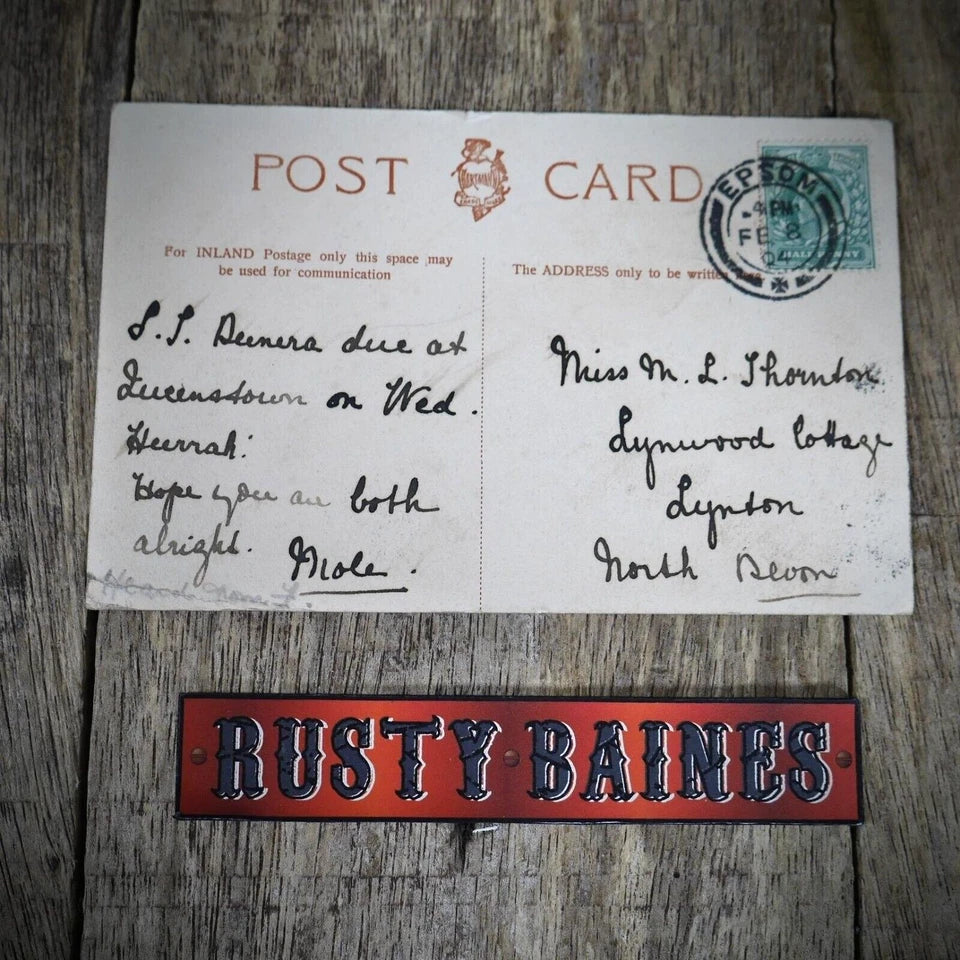 POST CARD
For INLAND Postage only this space may
be used for communication
The ADDRESS only to be written here
EPSOM
4 PM
FE 8
04
HALFPENNY
S.S. Dunera due at
Queenstown on Wed.
Hurrah!
Hope you are both
alright.
Mole.
Miss M. L. Thornton
Lynwood Cottage
Lynton
North Devon
RUSTY BAINES